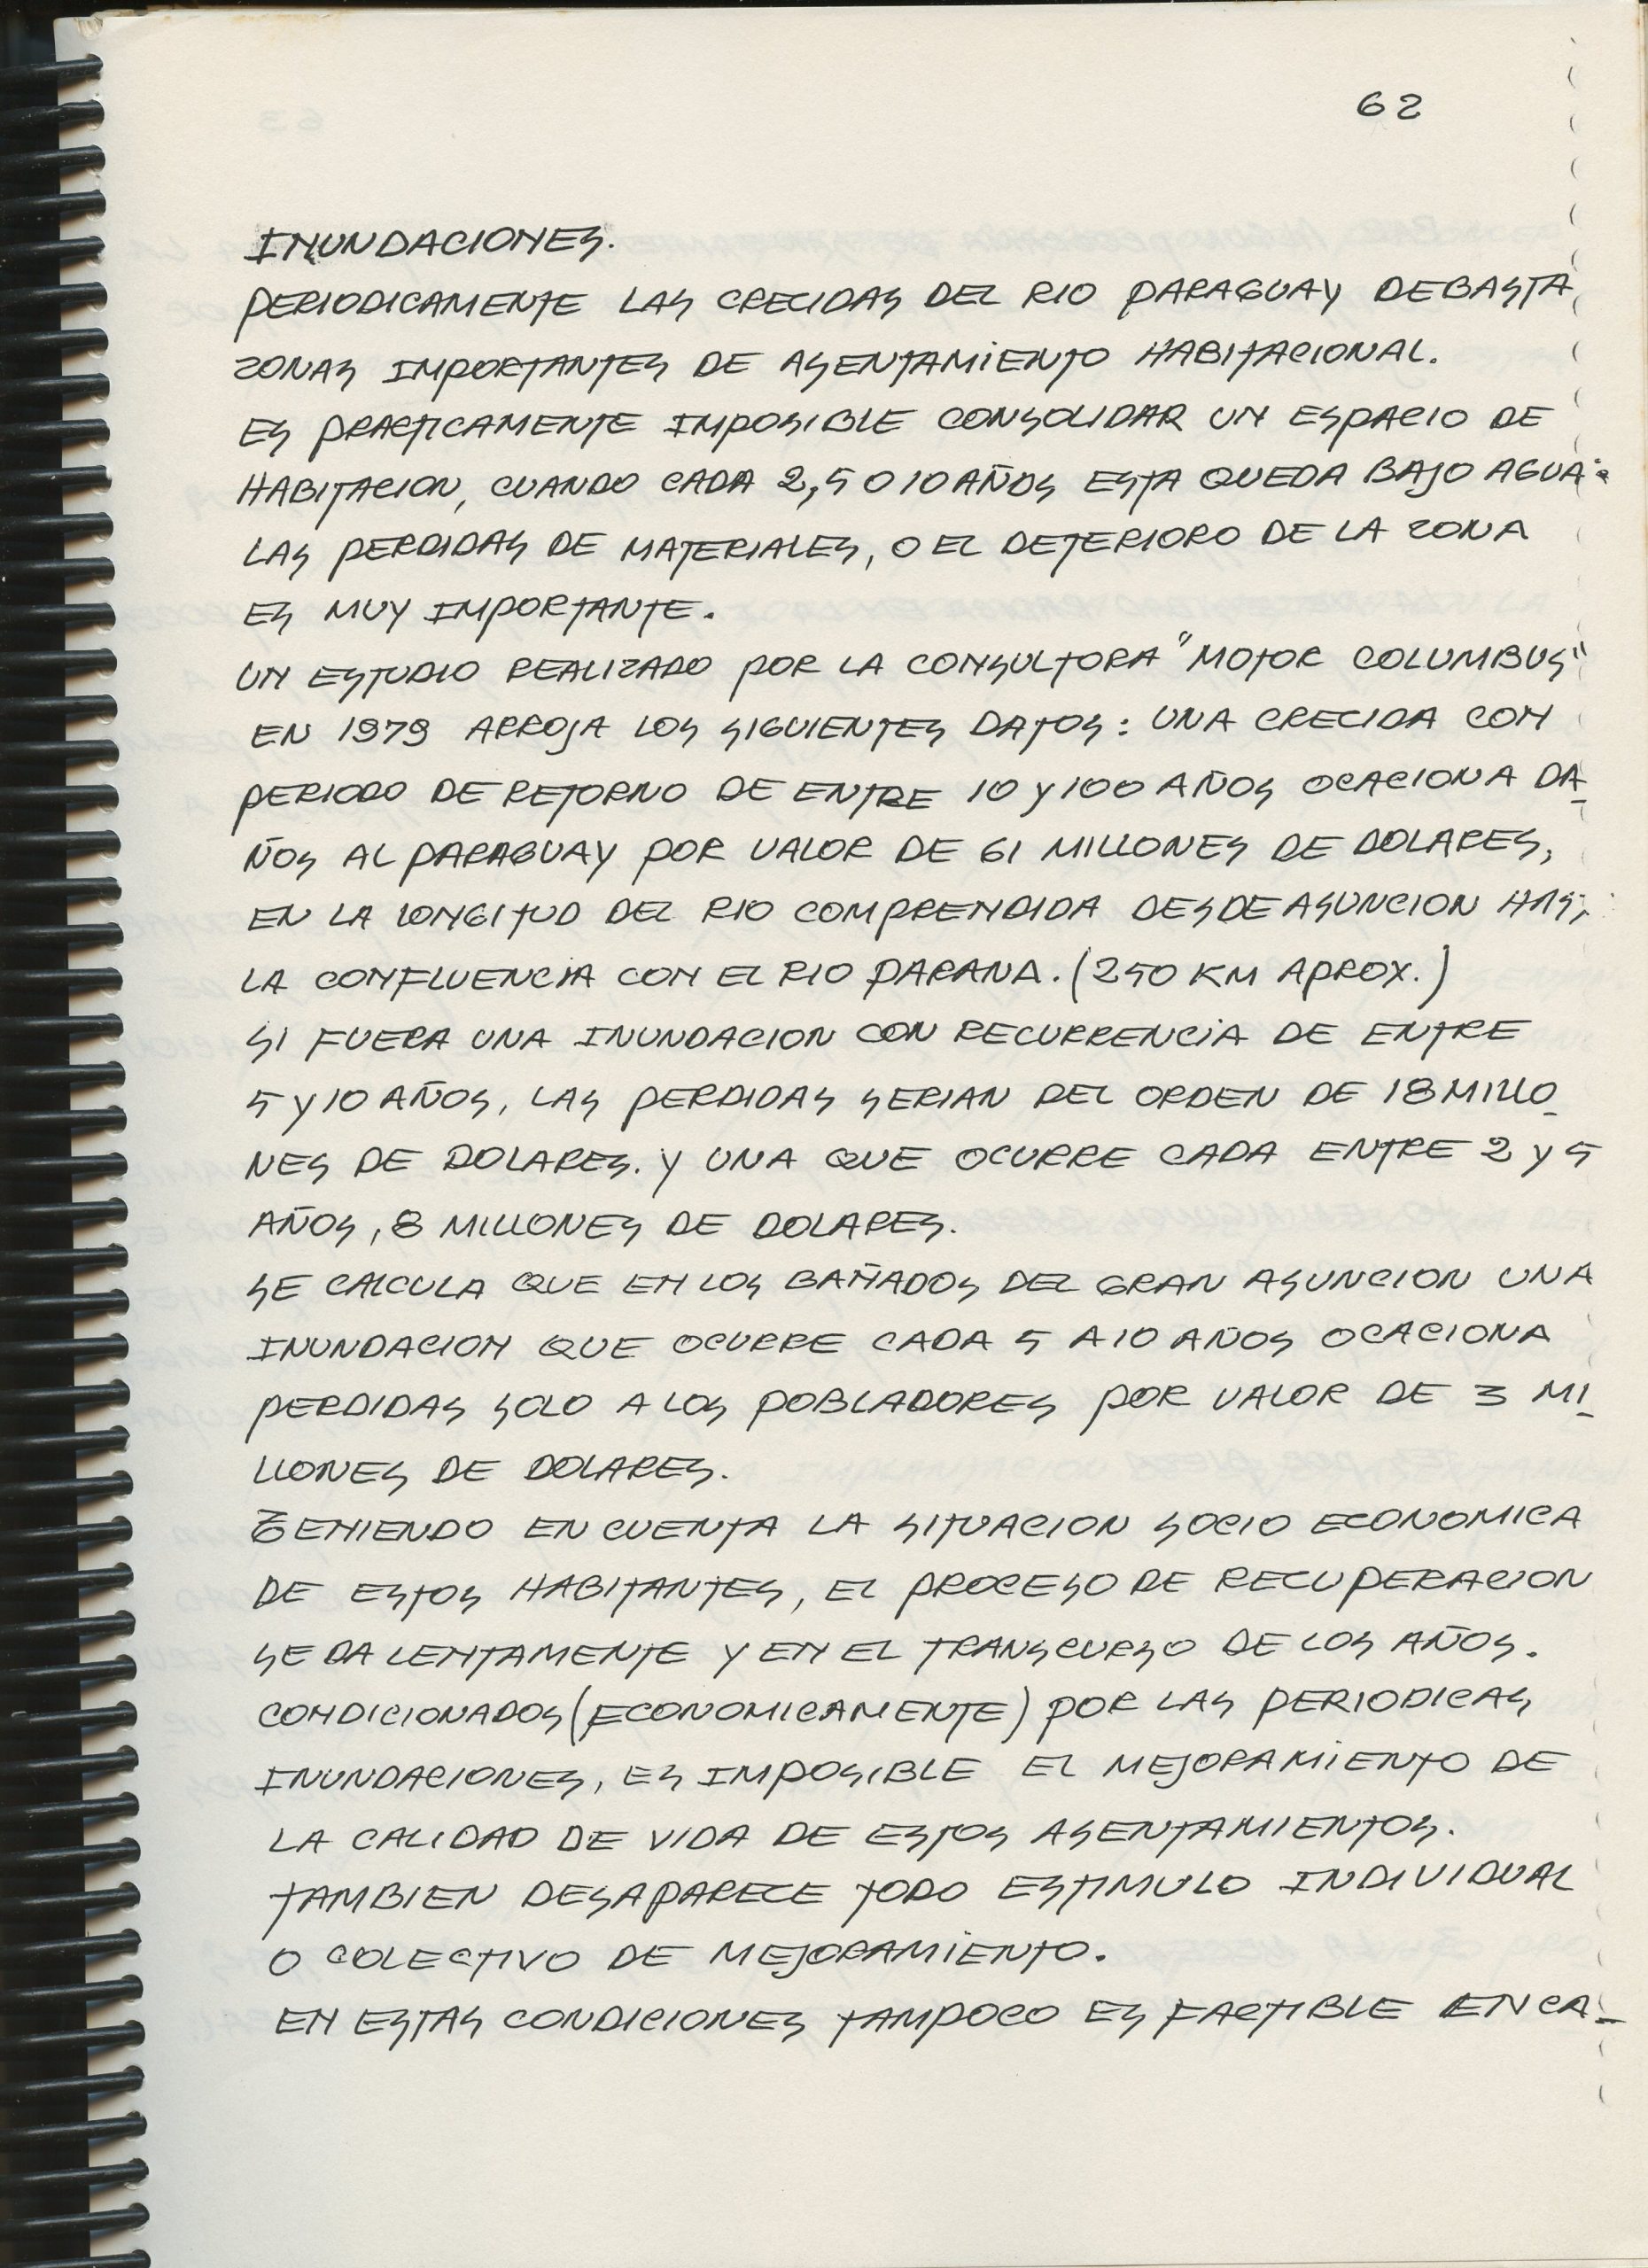 62
INUNDACIONES.
PERIODICAMENTE LAS CRECIDAS DEL RIO PARAGUAY DEBASTA
ZONAS IMPORTANTES DE ASENTAMIENTO HABITACIONAL.
ES PRACTICAMENTE IMPOSIBLE CONSOLIDAR UN ESPACIO DE
HABITACION, CUANDO CADA 2,5 O 10 AÑOS ESTA QUEDA BAJO AGUA.
LAS PERDIDAS DE MATERIALES, O EL DETERIORO DE LA ZONA
ES MUY IMPORTANTE.
UN ESTUDIO REALIZADO POR LA CONSULTORA "MOTOR COLUMBUS"
EN 1979 ARROJA LOS SIGUIENTES DATOS: UNA CRECIDA CON
PERIODO DE RETORNO DE ENTRE 10 Y 100 AÑOS OCACIONA DA-
ÑOS AL PARAGUAY POR VALOR DE 61 MILLONES DE DOLARES,
EN LA LONGITUD DEL RIO COMPRENDIDA DESDE ASUNCION HAS
LA CONFLUENCIA CON EL RIO PARANA. (250 KM APROX.)
SI FUERA UNA INUNDACION CON RECURRENCIA DE ENTRE
5 Y 10 AÑOS, LAS PERDIDAS SERIAN DEL ORDEN DE 18 MILLO-
NES DE DOLARES. Y UNA QUE OCURRE CADA ENTRE 2 Y 5
AÑOS, 8 MILLONES DE DOLARES.
SE CALCULA QUE EN LOS BAÑADOS DEL GRAN ASUNCION UNA
INUNDACION QUE OCURRE CADA 5 A 10 AÑOS OCACIONA
PERDIDAS SOLO A LOS POBLADORES POR VALOR DE 3 MI-
LLONES DE DOLARES.
TENIENDO EN CUENTA LA SITUACION SOCIO ECONOMICA
DE ESTOS HABITANTES, EL PROCESO DE RECUPERACION
SE DA LENTAMENTE Y EN EL TRANSCURSO DE LOS AÑOS.
CONDICIONADOS (ECONOMICAMENTE) POR LAS PERIODICAS
INUNDACIONES, ES IMPOSIBLE EL MEJORAMIENTO DE
LA CALIDAD DE VIDA DE ESTOS ASENTAMIENTOS.
TAMBIEN DESAPARECE TODO ESTIMULO INDIVIDUAL
O COLECTIVO DE MEJORAMIENTO.
EN ESTAS CONDICIONES TAMPOCO ES FACTIBLE ENCA-